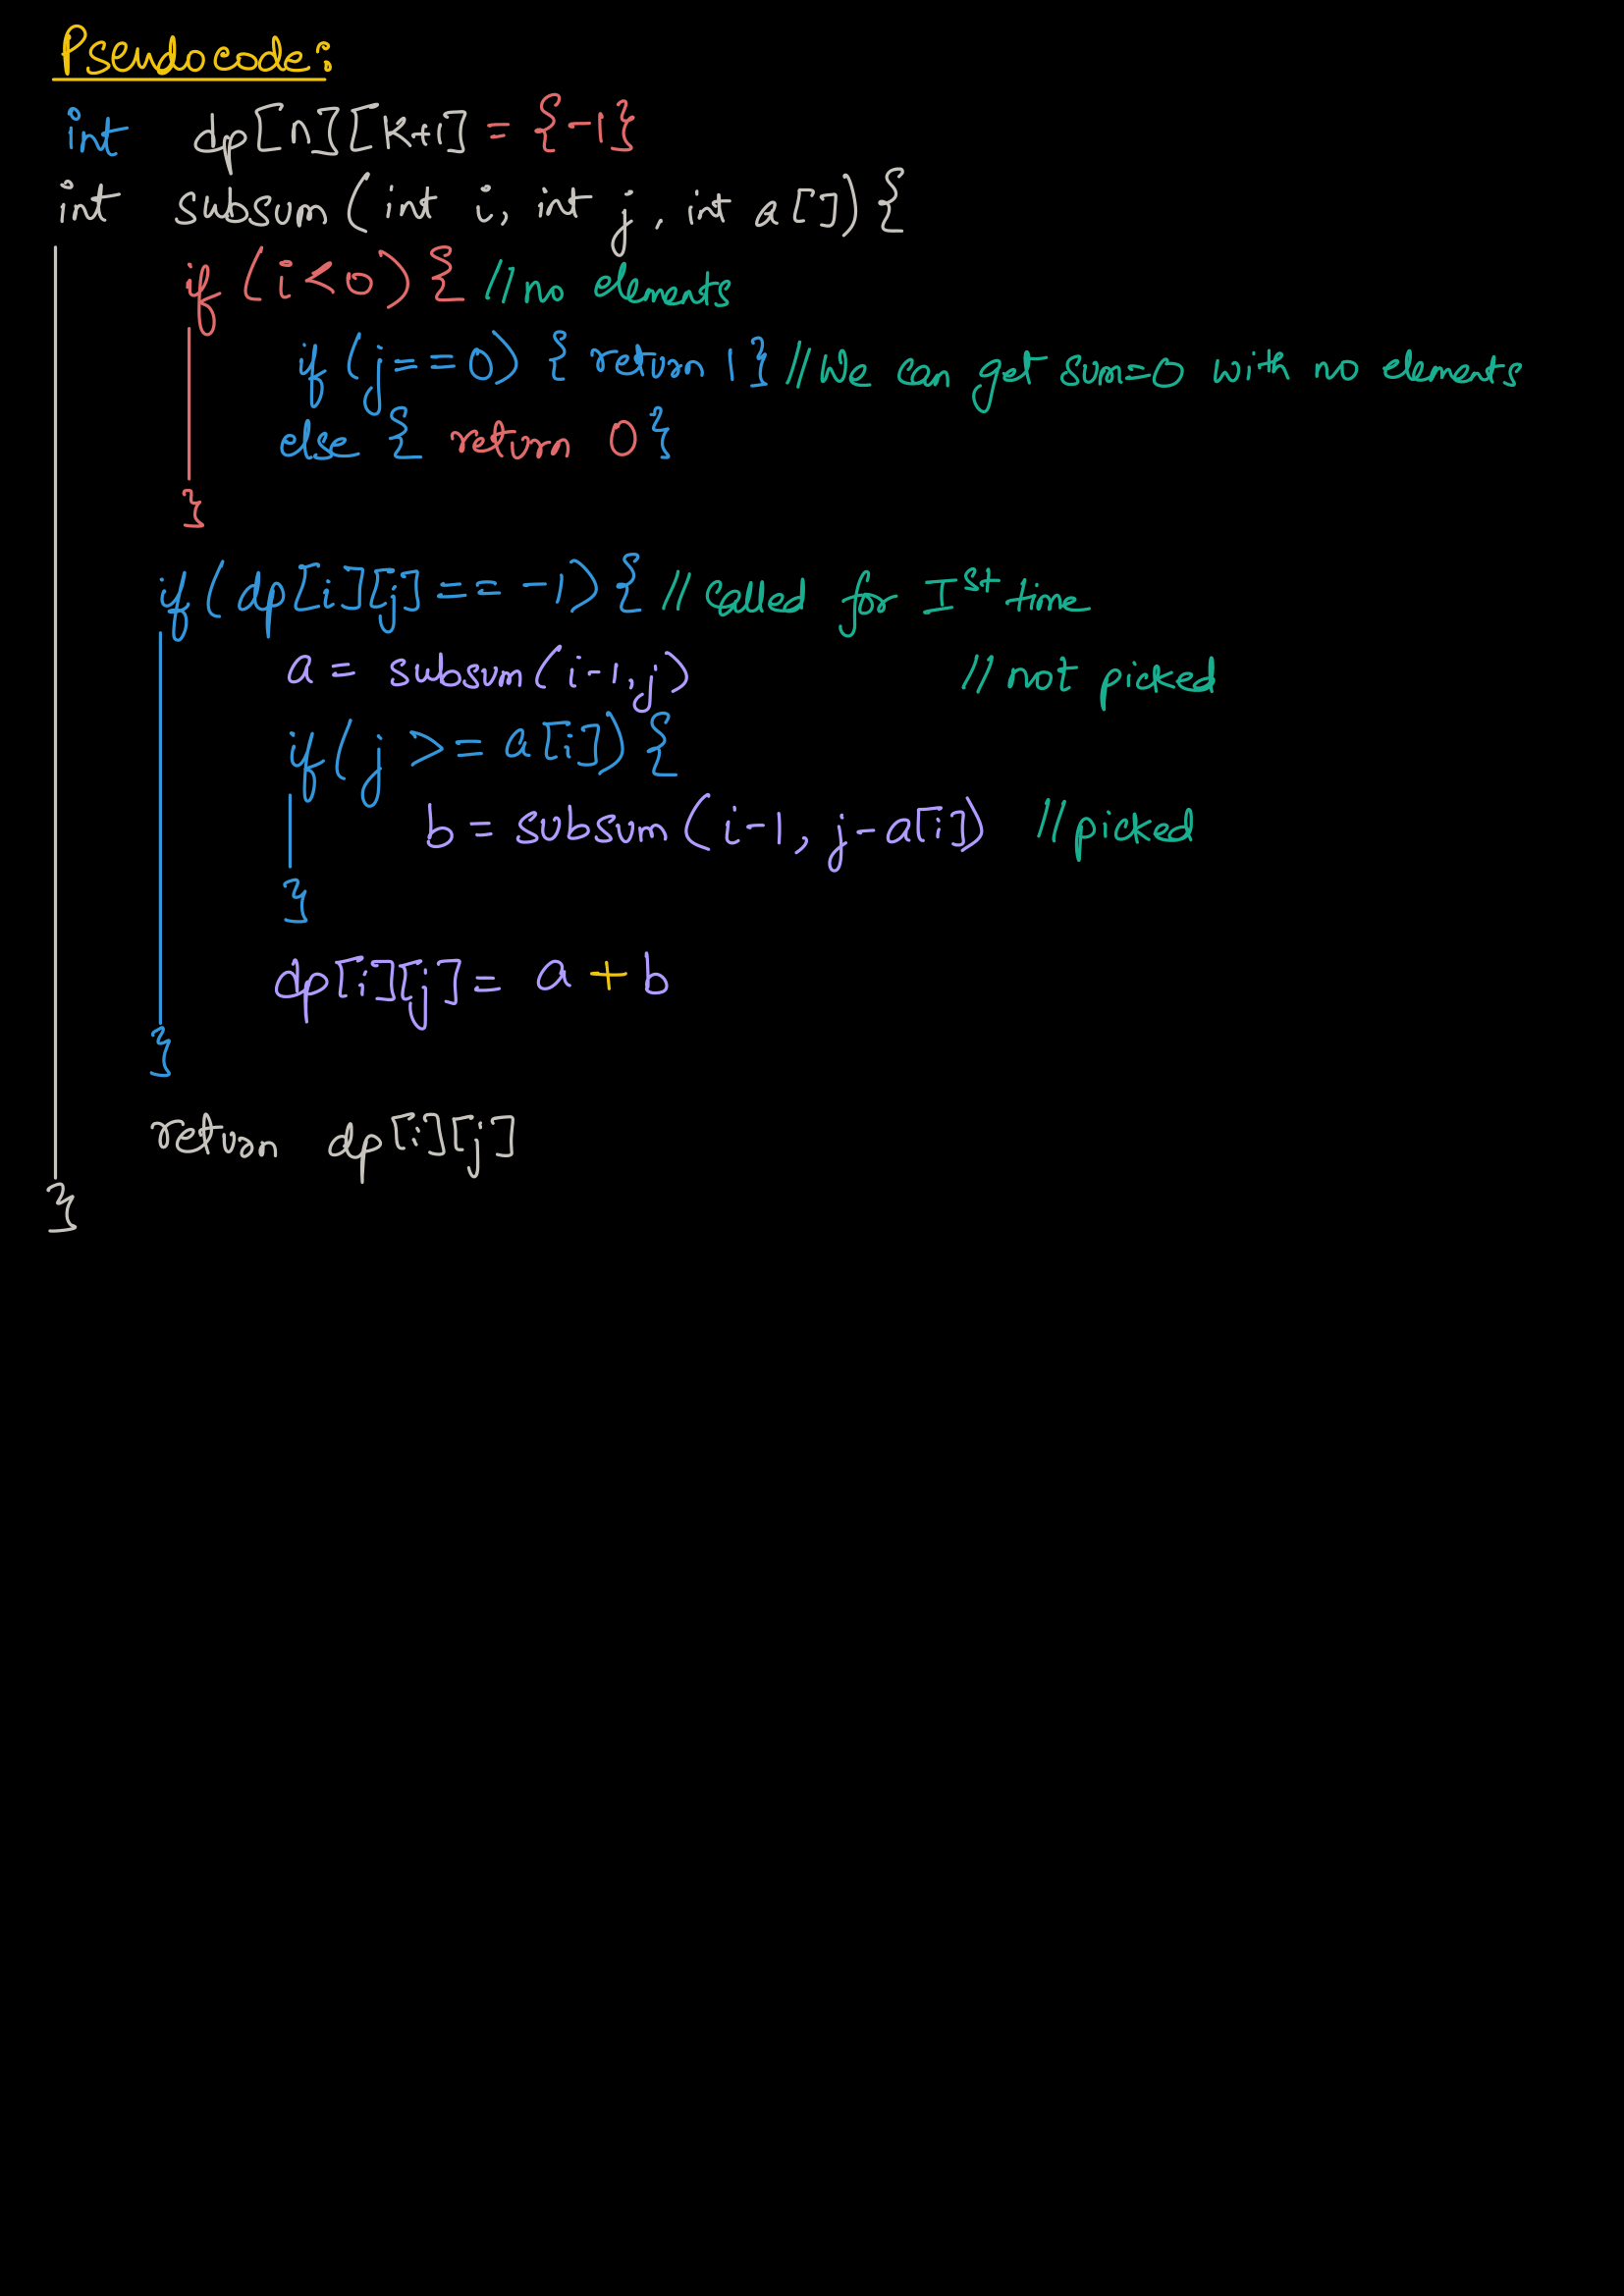 Pseudocode:
int dp[n][K+1] = {-1}
int subsum(int i, int j, int a[]){
if (i<0) { //no elements
if (j==0) { return 1} //We can get sum=0 with no elements
else { return 0}
}
if(dp[i][j] == -1){ //called for Ist time
a = subsum(i-1,j) //not picked
if(j >= a[i]){
b = subsum(i-1, j-a[i]) //picked
}
dp[i][j] = a + b
}
return dp[i][j]
}